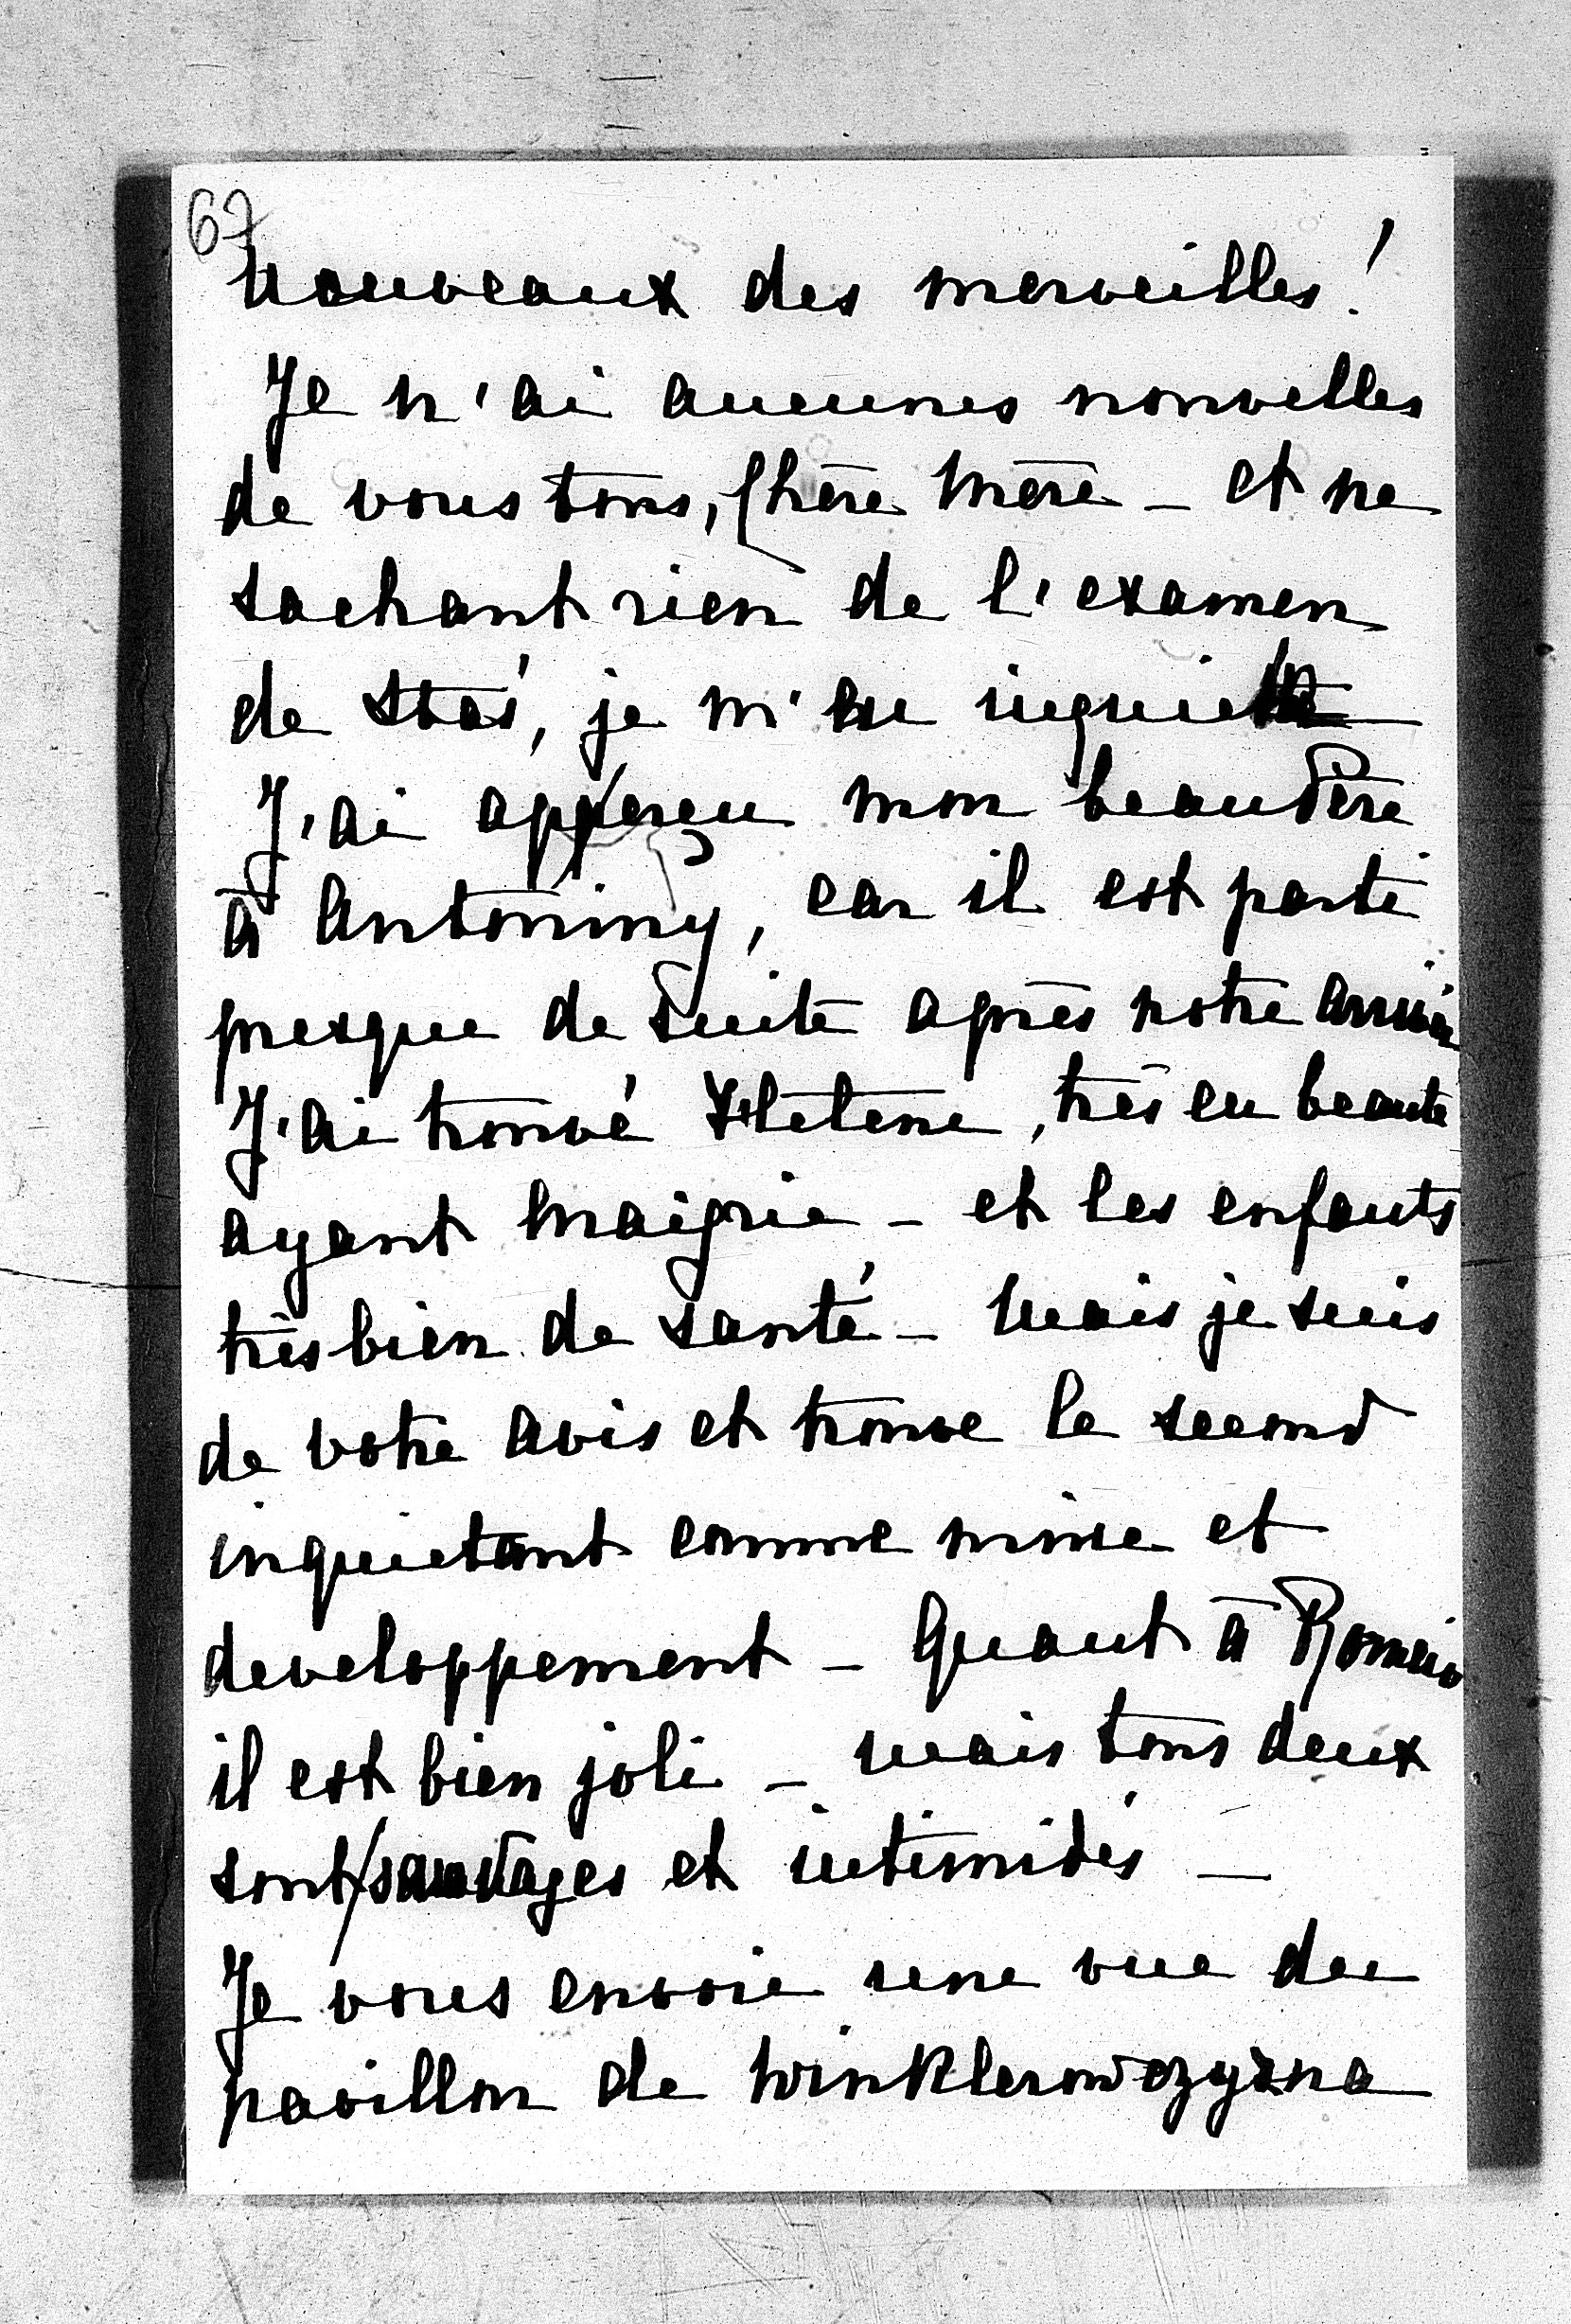 67
nouveaux des merveilles!
Je n'ai aucunes nouvelles
de vous tous, Chère Mère – et ne
sachant rien de l'examen
de Staś, je m'en inquiète
J'ai apperçu mon beau Père
à Antoniny, car il est parti
presque de suite après notre arrivée
J'ai trouvé Hélène, très en beauté
ayant maigrie – et les enfants
très bien de santé – Mais je suis
de votre avis et trouve le second
inquietant comme mine et
developpement – Quant à Romeio
il est bien joli – mais tous deux
sont sauvages et intimidés –
Je vous envoie une vue du
pavillon de Winklerowczyzna